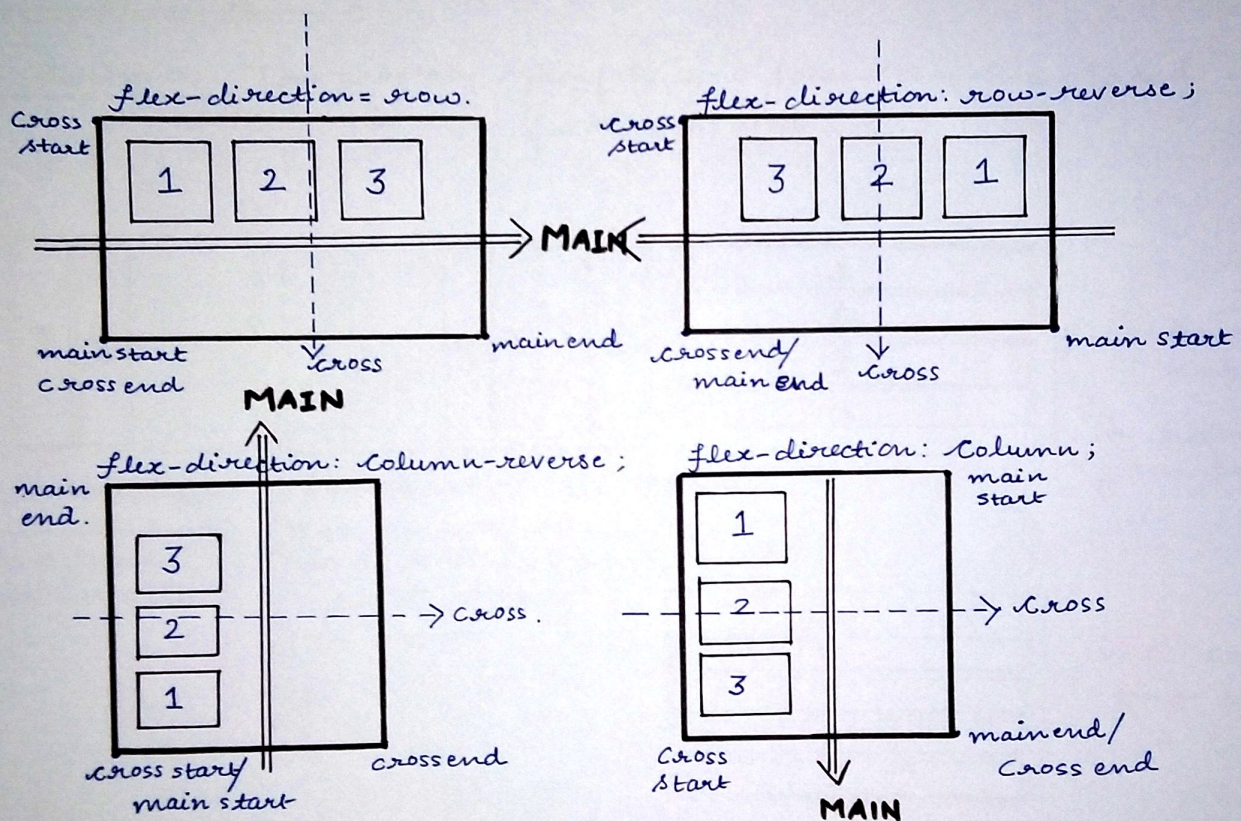 flex-direction = row.
cross
start
1 2 3
MAIN
main start
cross end
main end
cross
flex-direction: row-reverse;
cross
start
3 2 1
cross end/
main end
cross
main start
MAIN
flex-direction: column-reverse;
main
end.
3
2
1
cross.
cross start/
main start
cross end
flex-direction: column;
main
start
1
2
3
cross
cross
start
main end/
cross end
MAIN